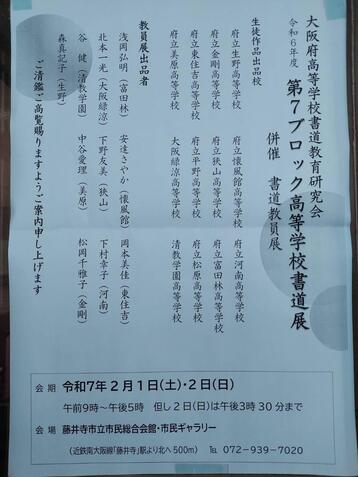 大阪府高等学校書道教育研究会
令和6年度 第7ブロック高等学校書道展
併催 書道教員展
生徒作品出品校
府立生野高等学校 府立懐風館高等学校 府立河南高等学校
府立金剛高等学校 府立狭山高等学校 府立富田林高等学校
府立東住吉高等学校 府立平野高等学校 府立松原高等学校
府立美原高等学校 大阪緑涼高等学校 清教学園高等学校
教員展出品者
浅岡弘明（富田林） 安達さやか（懐風館） 岡本美佳（東住吉）
北本一光（大阪緑涼） 下野友美（狭山） 下村幸子（河南）
谷 健（清教学園） 中谷愛理（美原） 松岡千雅子（金剛）
森真記子（生野）
ご清鑑ご高覧賜りますようご案内申し上げます
会期 令和7年2月1日(土)・2日(日)
午前9時～午後5時 但し2日(日)は午後3時30分まで
会場 藤井寺市立市民総合会館・市民ギャラリー
(近鉄南大阪線「藤井寺」駅より北へ500m) ℡ 072-939-7020